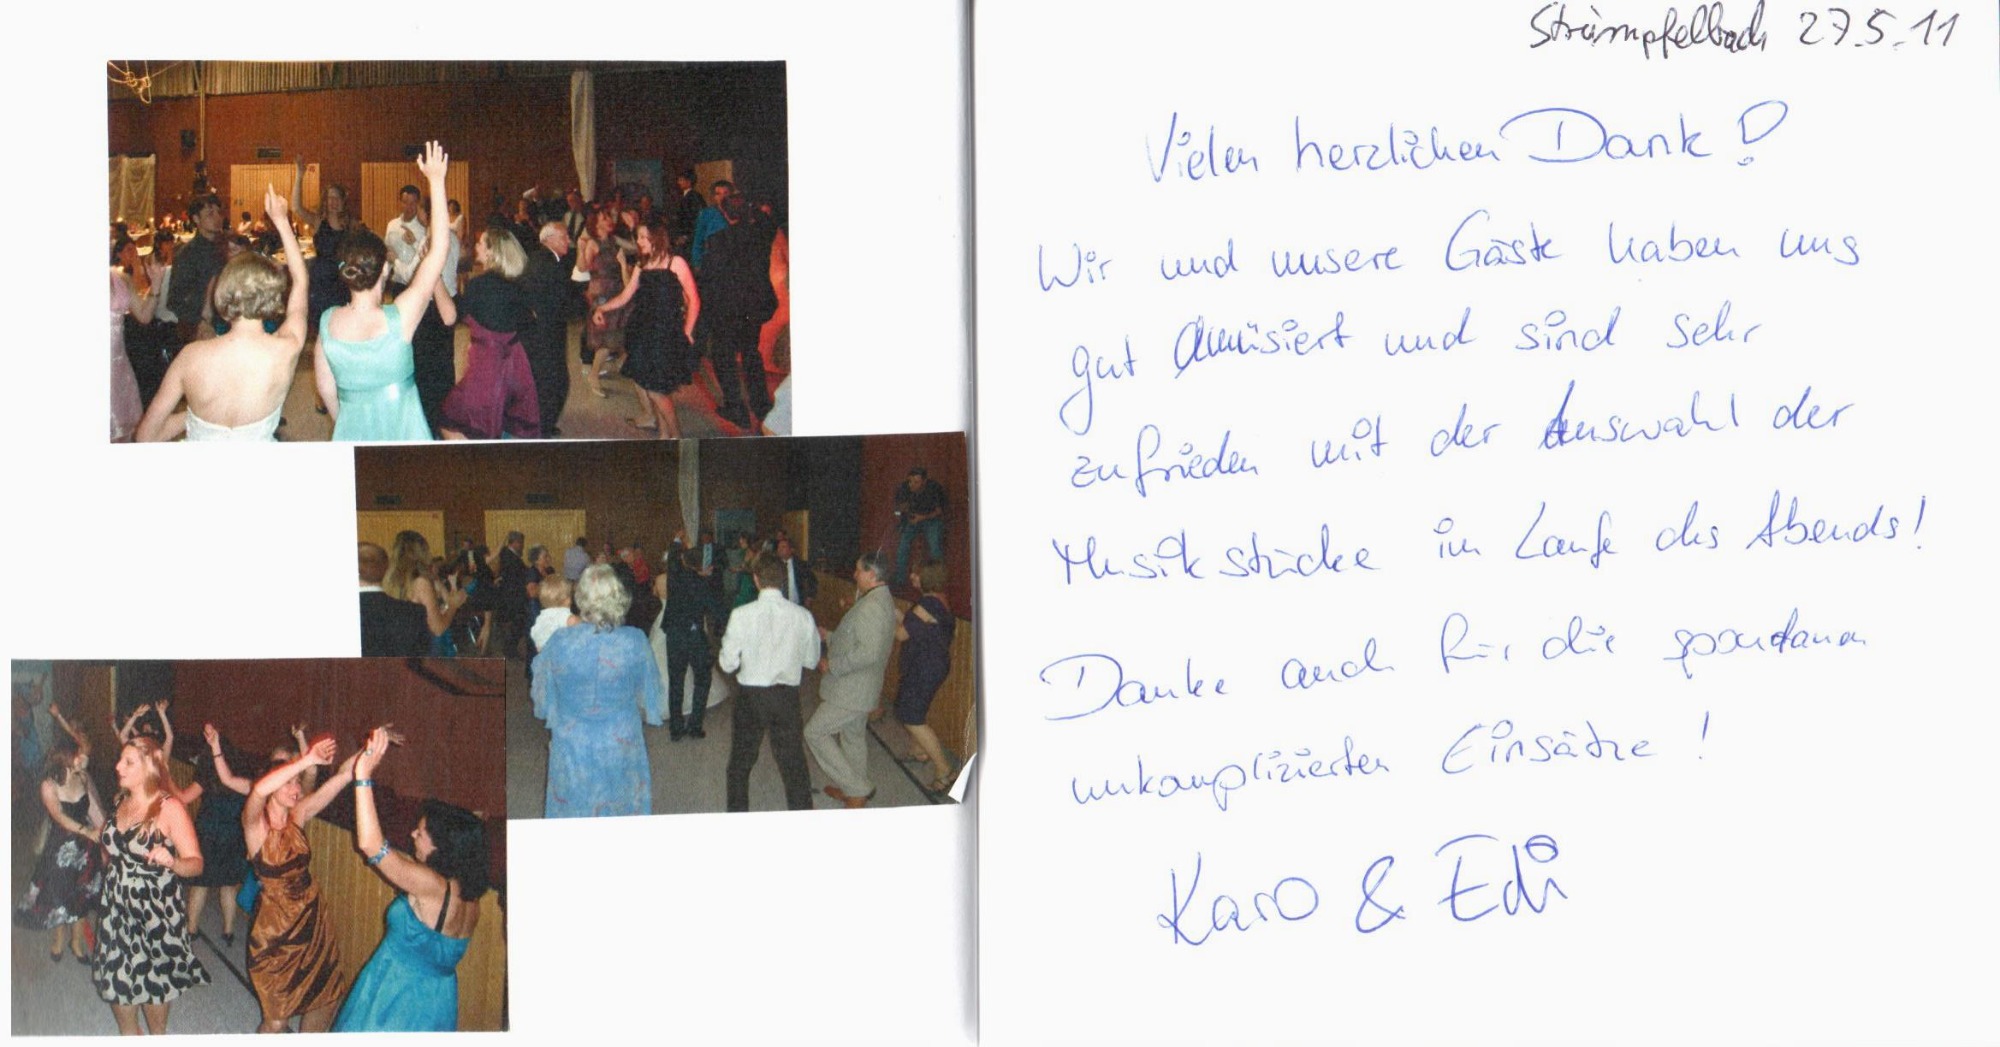 Strümpfelbach 27.5.11
Vielen herzlichen Dank!
Wir und unsere Gäste haben uns
gut Amüsiert und sind sehr
zufrieden mit der Auswahl der
Musikstücke im Laufe des Abends!
Danke auch für die spontanen
unkomplizierten Einsätze!
Karo & Edi